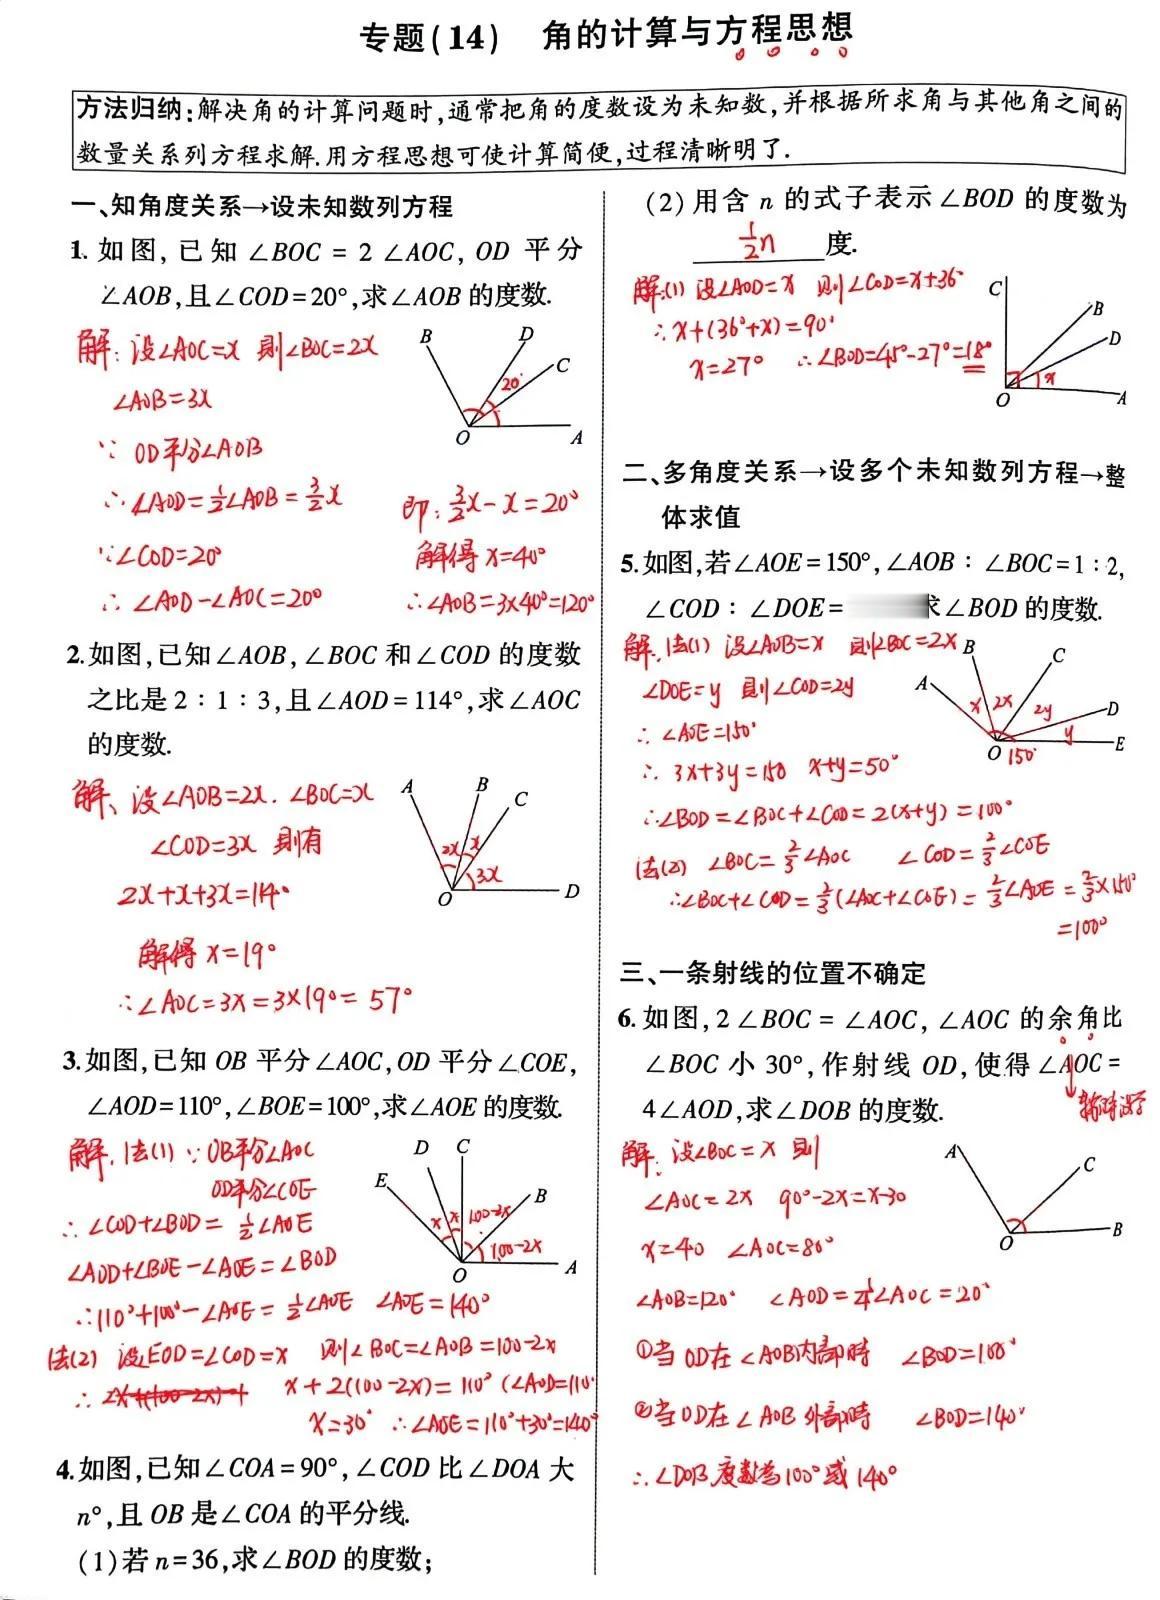 专题(14) 角的计算与方程思想
方法归纳:解决角的计算问题时,通常把角的度数设为未知数,并根据所求角与其他角之间的
数量关系列方程求解.用方程思想可使计算简便,过程清晰明了.
一、知角度关系→设未知数列方程
1. 如图, 已知 ∠BOC = 2 ∠AOC, OD 平分
∠AOB,且∠COD=20°,求∠AOB 的度数.
解: 设∠AOC=x 则∠BOC=2x
∠AOB=3x
∵ OD平分∠AOB
∴ ∠AOD=½∠AOB=3/2x
即: 3/2x-x=20°
∵∠COD=20°
解得 x=40°
∴ ∠AOD-∠AOC=20°
∴∠AOB=3×40°=120°
B D C 20° O A
2.如图,已知∠AOB,∠BOC 和∠COD 的度数
之比是 2:1:3,且∠AOD=114°,求∠AOC
的度数.
解、设∠AOB=2x. ∠BOC=x
∠COD=3x 则有
2x+x+3x=114°
解得 x=19°
∴∠AOC=3x=3×19°=57°
A B C 2x x 3x O D
3.如图,已知 OB 平分∠AOC,OD 平分∠COE,
∠AOD=110°,∠BOE=100°,求∠AOE 的度数.
解. 法(1) ∵OB平分∠AOC
OD平分∠COE
∴∠COD+∠BOD=½∠AOE
∠AOD+∠BOE-∠AOE=∠BOD
∴110°+100°-∠AOE=½∠AOE ∠AOE=140°
法(2) 设EOD=∠COD=x 则∠BOC=∠AOB=100-2x
∴ x+2(100-2x)=110° (∠AOD=110
x=30° ∴∠AOE=110°+30°=140°
D C E B x x 100-2x 100-2x O A
4.如图,已知∠COA=90°,∠COD 比∠DOA 大
n°,且 OB 是∠COA 的平分线.
(1)若 n=36,求∠BOD 的度数;
(2)用含 n 的式子表示∠BOD 的度数为
½n 度.
解:(1) 设∠AOD=x 则∠COD=x+36°
∴x+(36°+x)=90°
x=27° ∴∠BOD=45°-27°=18°
C B D x O A
二、多角度关系→设多个未知数列方程→整
体求值
5.如图,若∠AOE=150°,∠AOB:∠BOC=1:2,
∠COD:∠DOE= 求∠BOD 的度数.
解. 法(1) 设∠AOB=x 则∠BOC=2x
∠DOE=y 则∠COD=2y
∴ ∠AOE=150°
∴ 3x+3y=150 x+y=50°
∴∠BOD=∠BOC+∠COD=2(x+y)=100°
法(2) ∠BOC=2/3∠AOC ∠COD=2/3∠COE
∴∠BOC+∠COD=2/3(∠AOC+∠COE)=2/3∠AOE=2/3×150°
=100°
B C A D x 2x 2y y O 150° E
三、一条射线的位置不确定
6.如图, 2 ∠BOC = ∠AOC, ∠AOC 的余角比
∠BOC 小 30°, 作射线 OD, 使得∠AOC=
4∠AOD,求∠DOB 的度数.
解. 设∠BOC=x 则
∠AOC=2x 90°-2x=x-30
x=40 ∠AOC=80°
∠AOB=120° ∠AOD=¼∠AOC=20°
①当OD在∠AOB内部时 ∠BOD=100°
②当OD在∠AOB外部时 ∠BOD=140°
∴∠DOB度数为100°或140°
A C O B